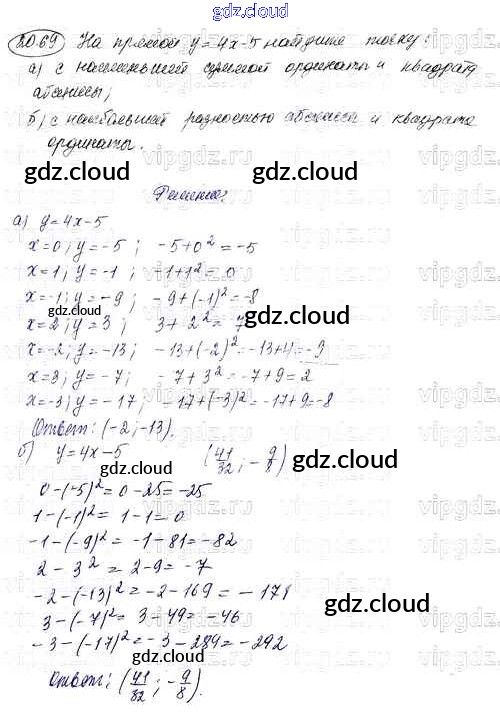 gdz.cloud
20.69 На прямой y=4x-5 найдите точку:
а) с наименьшей суммой ординаты и квадрата
абсциссы;
б) с наибольшей разностью абсциссы и квадрата
ординаты.
gdz.cloud gdz.cloud
Решение:
а) y=4x-5
x=0; y=-5; -5+0²=-5
x=1; y=-1; -1+1²=0
x=-1; y=-9; -9+(-1)²=-8
x=2; y=3; 3+2²=7
gdz.cloud
x=-2; y=-13; -13+(-2)²=-13+4=-9
x=3; y=-7; -7+3²=-7+9=2
x=-3; y=-17; -17+(-3)²=-17+9=-8
Ответ: (-2; -13).
б) y=4x-5 (41/32; -9/8)
gdz.cloud
0-(-5)²=0-25=-25
gdz.cloud
1-(-1)²=1-1=0
-1-(-9)²=-1-81=-82
2-3²=2-9=-7
-2-(-13)²=-2-169=-171
3-(-7)²=3-49=-46
gdz.cloud
-3-(-17)²=-3-289=-292
Ответ: (41/32; -9/8).
gdz.cloud